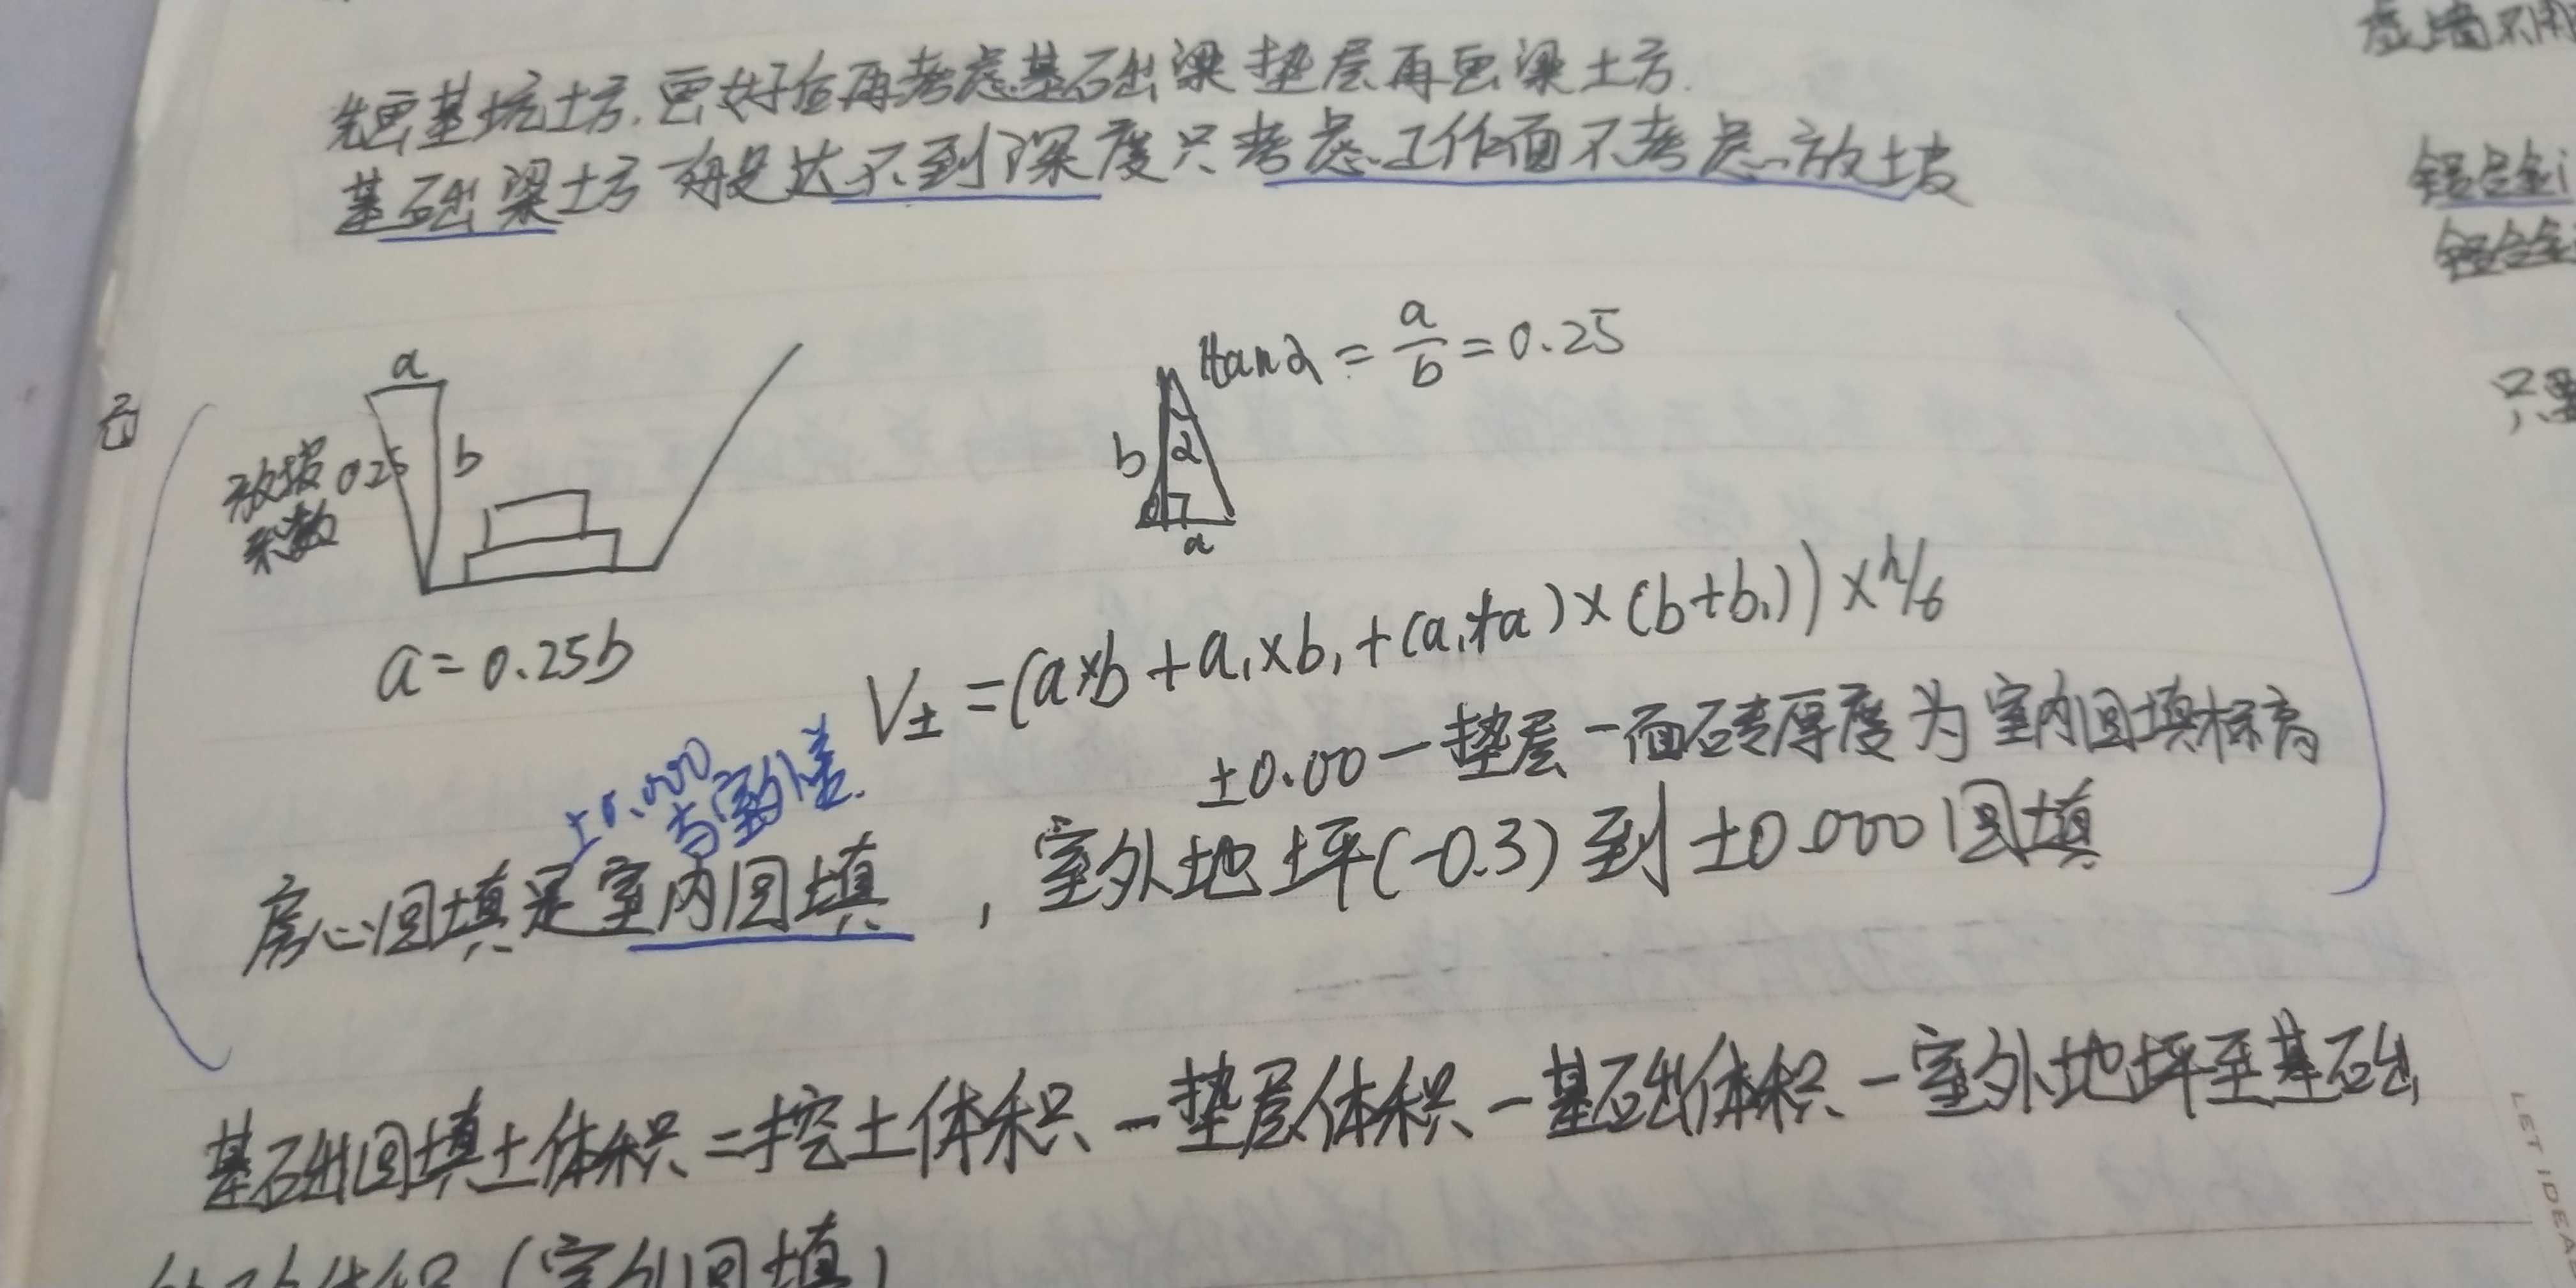 先画基坑土方.画好后再考虑基础梁垫层再画梁土方.
基础梁土方 达不到深度只考虑工作面不考虑放坡
a
放坡 0.25 b
系数
a=0.25b
tanα = a/b = 0.25
b α
a
V土 =(a×b+a₁×b₁+(a₁+a)×(b+b₁))×h/6
±0.00-垫层-面砖厚度为室内回填标高
±0.000
与室外差.
房心回填是室内回填,室外地坪(-0.3)到±0.000回填
基础回填土体积=挖土体积-垫层体积-基础体积-室外地坪至基础
(室外回填)
虚墙不用
铝合金
铝合金
只要
LET IDEA